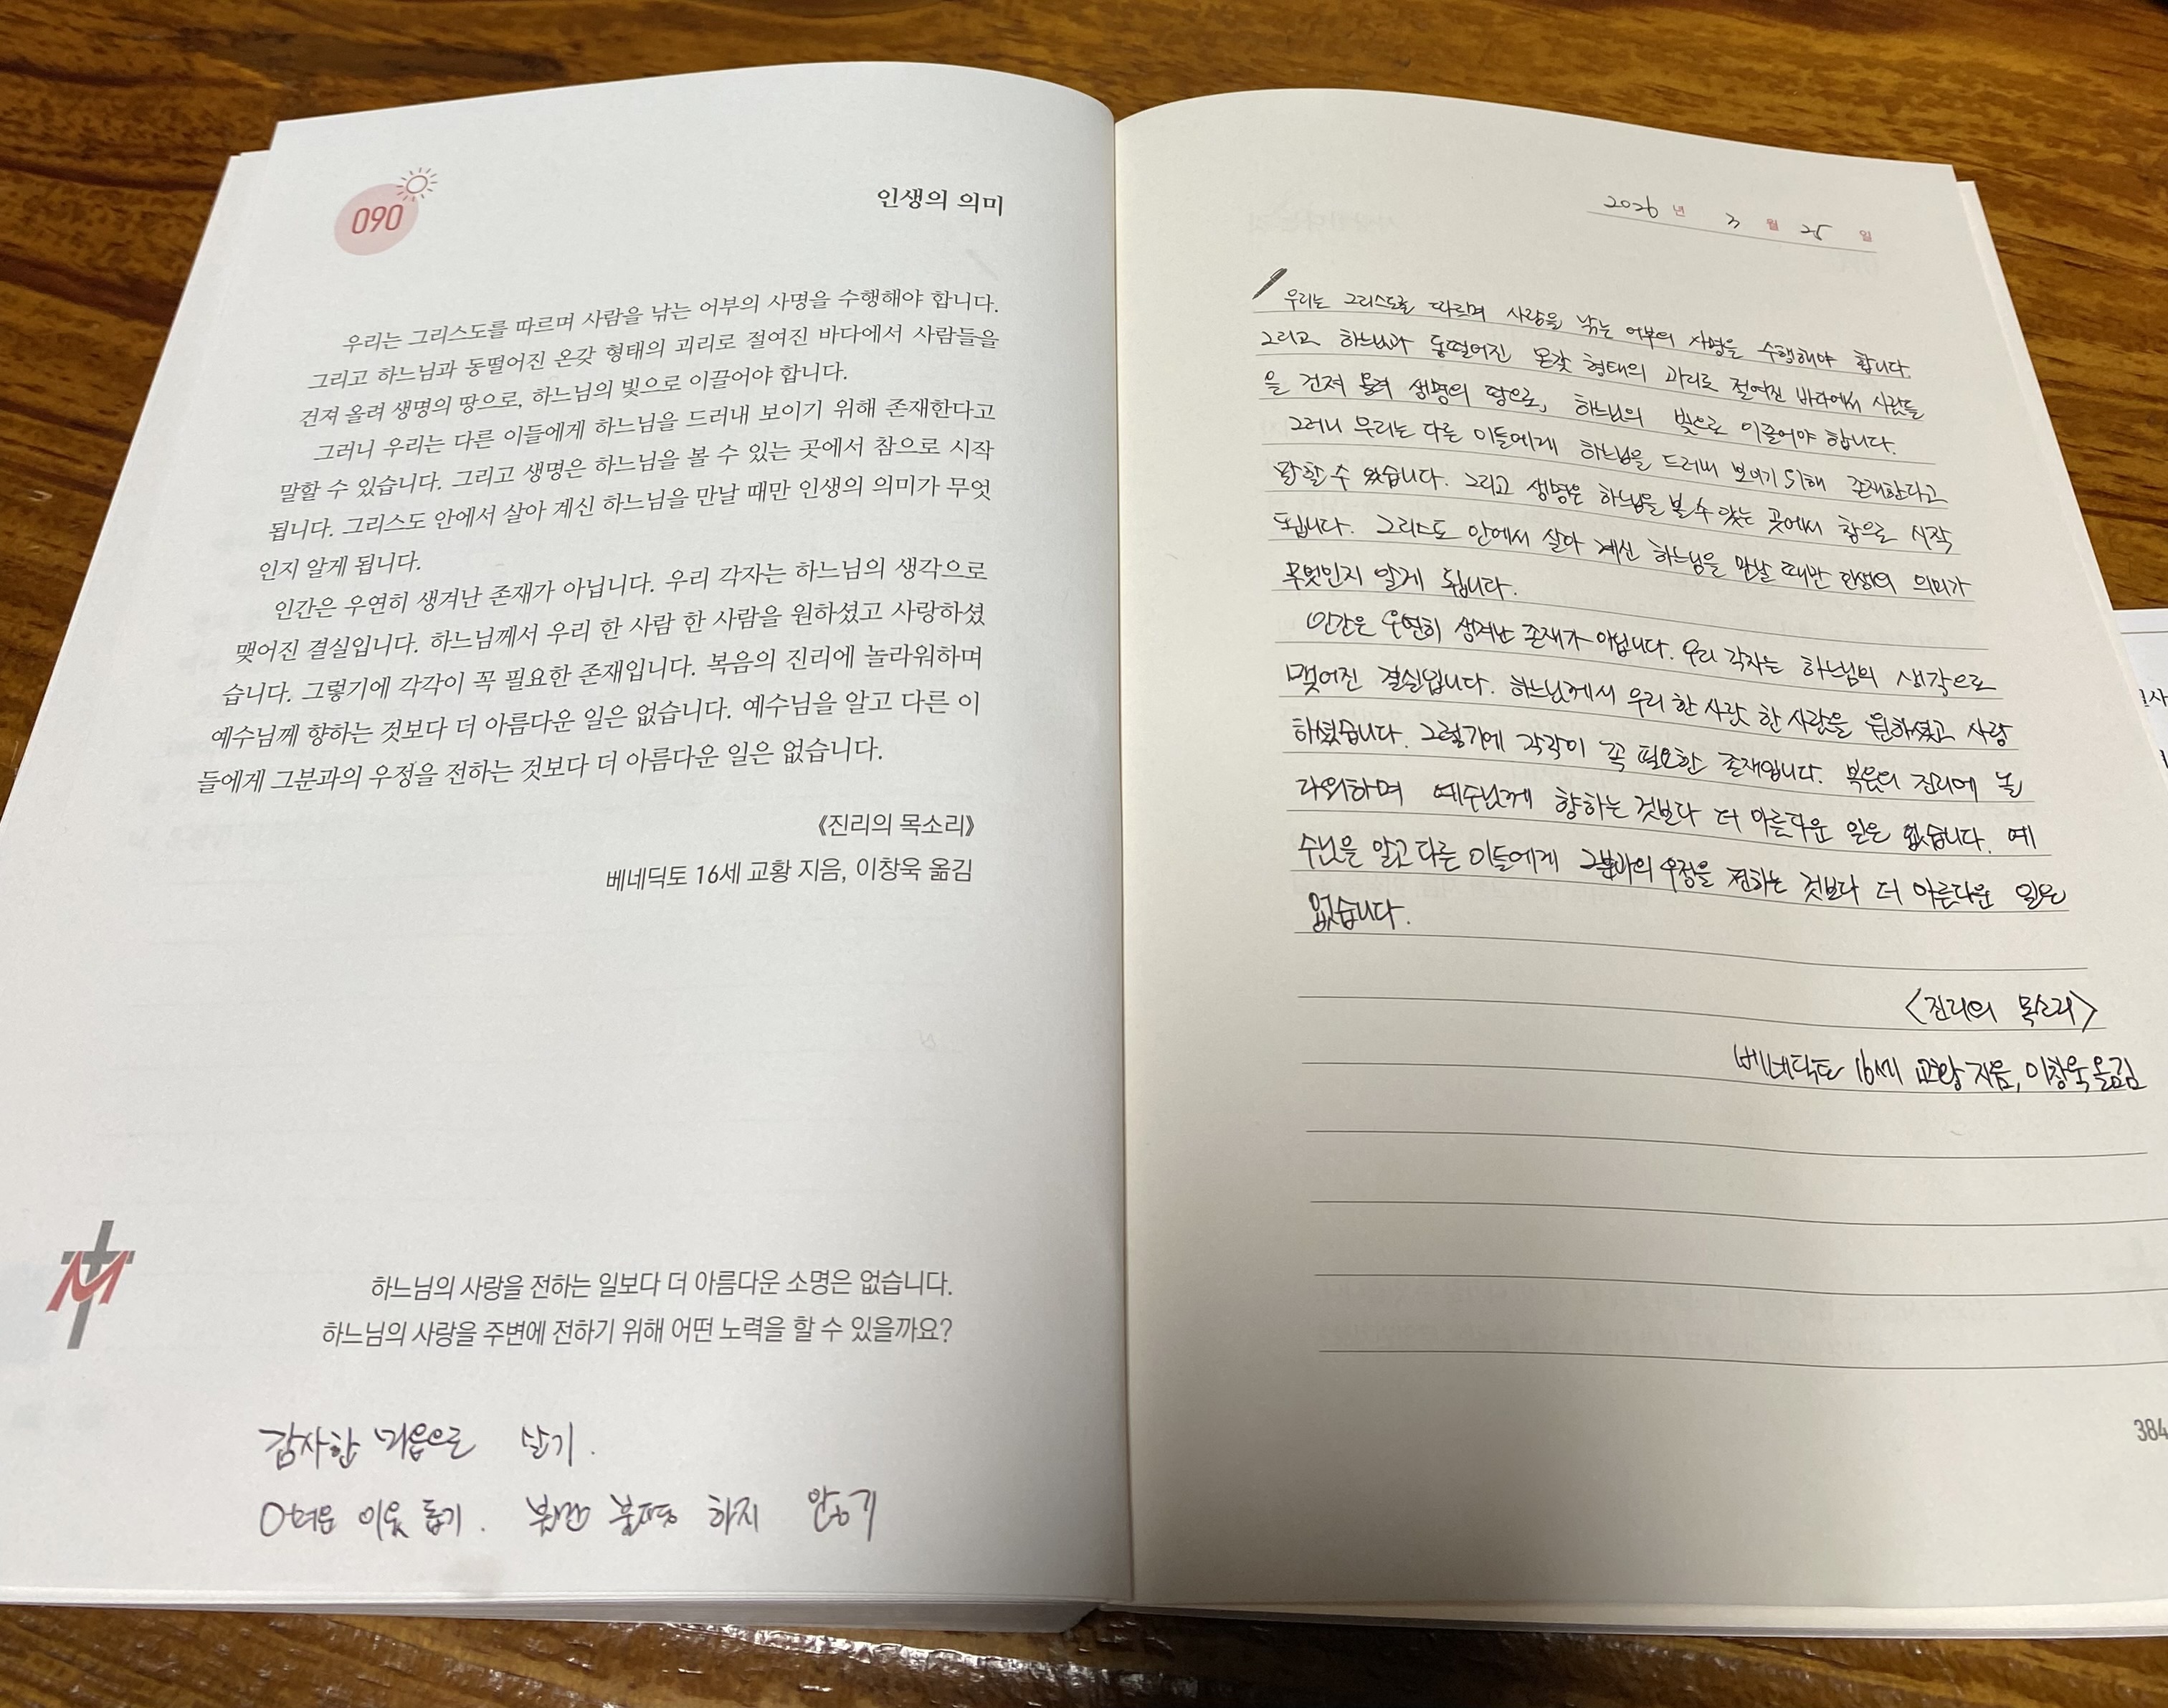 090
인생의 의미
우리는 그리스도를 따르며 사람을 낚는 어부의 사명을 수행해야 합니다.
그리고 하느님과 동떨어진 온갖 형태의 괴리로 절여진 바다에서 사람들을
건져 올려 생명의 땅으로, 하느님의 빛으로 이끌어야 합니다.
그러니 우리는 다른 이들에게 하느님을 드러내 보이기 위해 존재한다고
말할 수 있습니다. 그리고 생명은 하느님을 볼 수 있는 곳에서 참으로 시작
됩니다. 그리스도 안에서 살아 계신 하느님을 만날 때만 인생의 의미가 무엇
인지 알게 됩니다.
인간은 우연히 생겨난 존재가 아닙니다. 우리 각자는 하느님의 생각으로
맺어진 결실입니다. 하느님께서 우리 한 사람 한 사람을 원하셨고 사랑하셨
습니다. 그렇기에 각각이 꼭 필요한 존재입니다. 복음의 진리에 놀라워하며
예수님께 향하는 것보다 더 아름다운 일은 없습니다. 예수님을 알고 다른 이
들에게 그분과의 우정을 전하는 것보다 더 아름다운 일은 없습니다.
《진리의 목소리》
베네딕토 16세 교황 지음, 이창욱 옮김
하느님의 사랑을 전하는 일보다 더 아름다운 소명은 없습니다.
하느님의 사랑을 주변에 전하기 위해 어떤 노력을 할 수 있을까요?
감사한 마음으로 살기.
어려운 이웃 돕기. 불만 불평 하지 않기
2026 년 3 월 25 일
우리는 그리스도를 따르며 사람을 낚는 어부의 사명을 수행해야 합니다.
그리고 하느님과 동떨어진 온갖 형태의 괴리로 절여진 바다에서 사람들
을 건져 올려 생명의 땅으로, 하느님의 빛으로 이끌어야 합니다.
그러니 우리는 다른 이들에게 하느님을 드러내 보이기 위해 존재한다고
말할 수 있습니다. 그리고 생명은 하느님을 볼 수 있는 곳에서 참으로 시작
됩니다. 그리스도 안에서 살아 계신 하느님을 만날 때만 인생의 의미가
무엇인지 알게 됩니다.
인간은 우연히 생겨난 존재가 아닙니다. 우리 각자는 하느님의 생각으로
맺어진 결실입니다. 하느님께서 우리 한 사람 한 사람을 원하셨고 사랑
하셨습니다. 그렇기에 각각이 꼭 필요한 존재입니다. 복음의 진리에 놀
라워하며 예수님께 향하는 것보다 더 아름다운 일은 없습니다. 예
수님을 알고 다른 이들에게 그분과의 우정을 전하는 것보다 더 아름다운 일은
없습니다.
<진리의 목소리>
베네딕토 16세 교황 지음, 이창욱 옮김
384